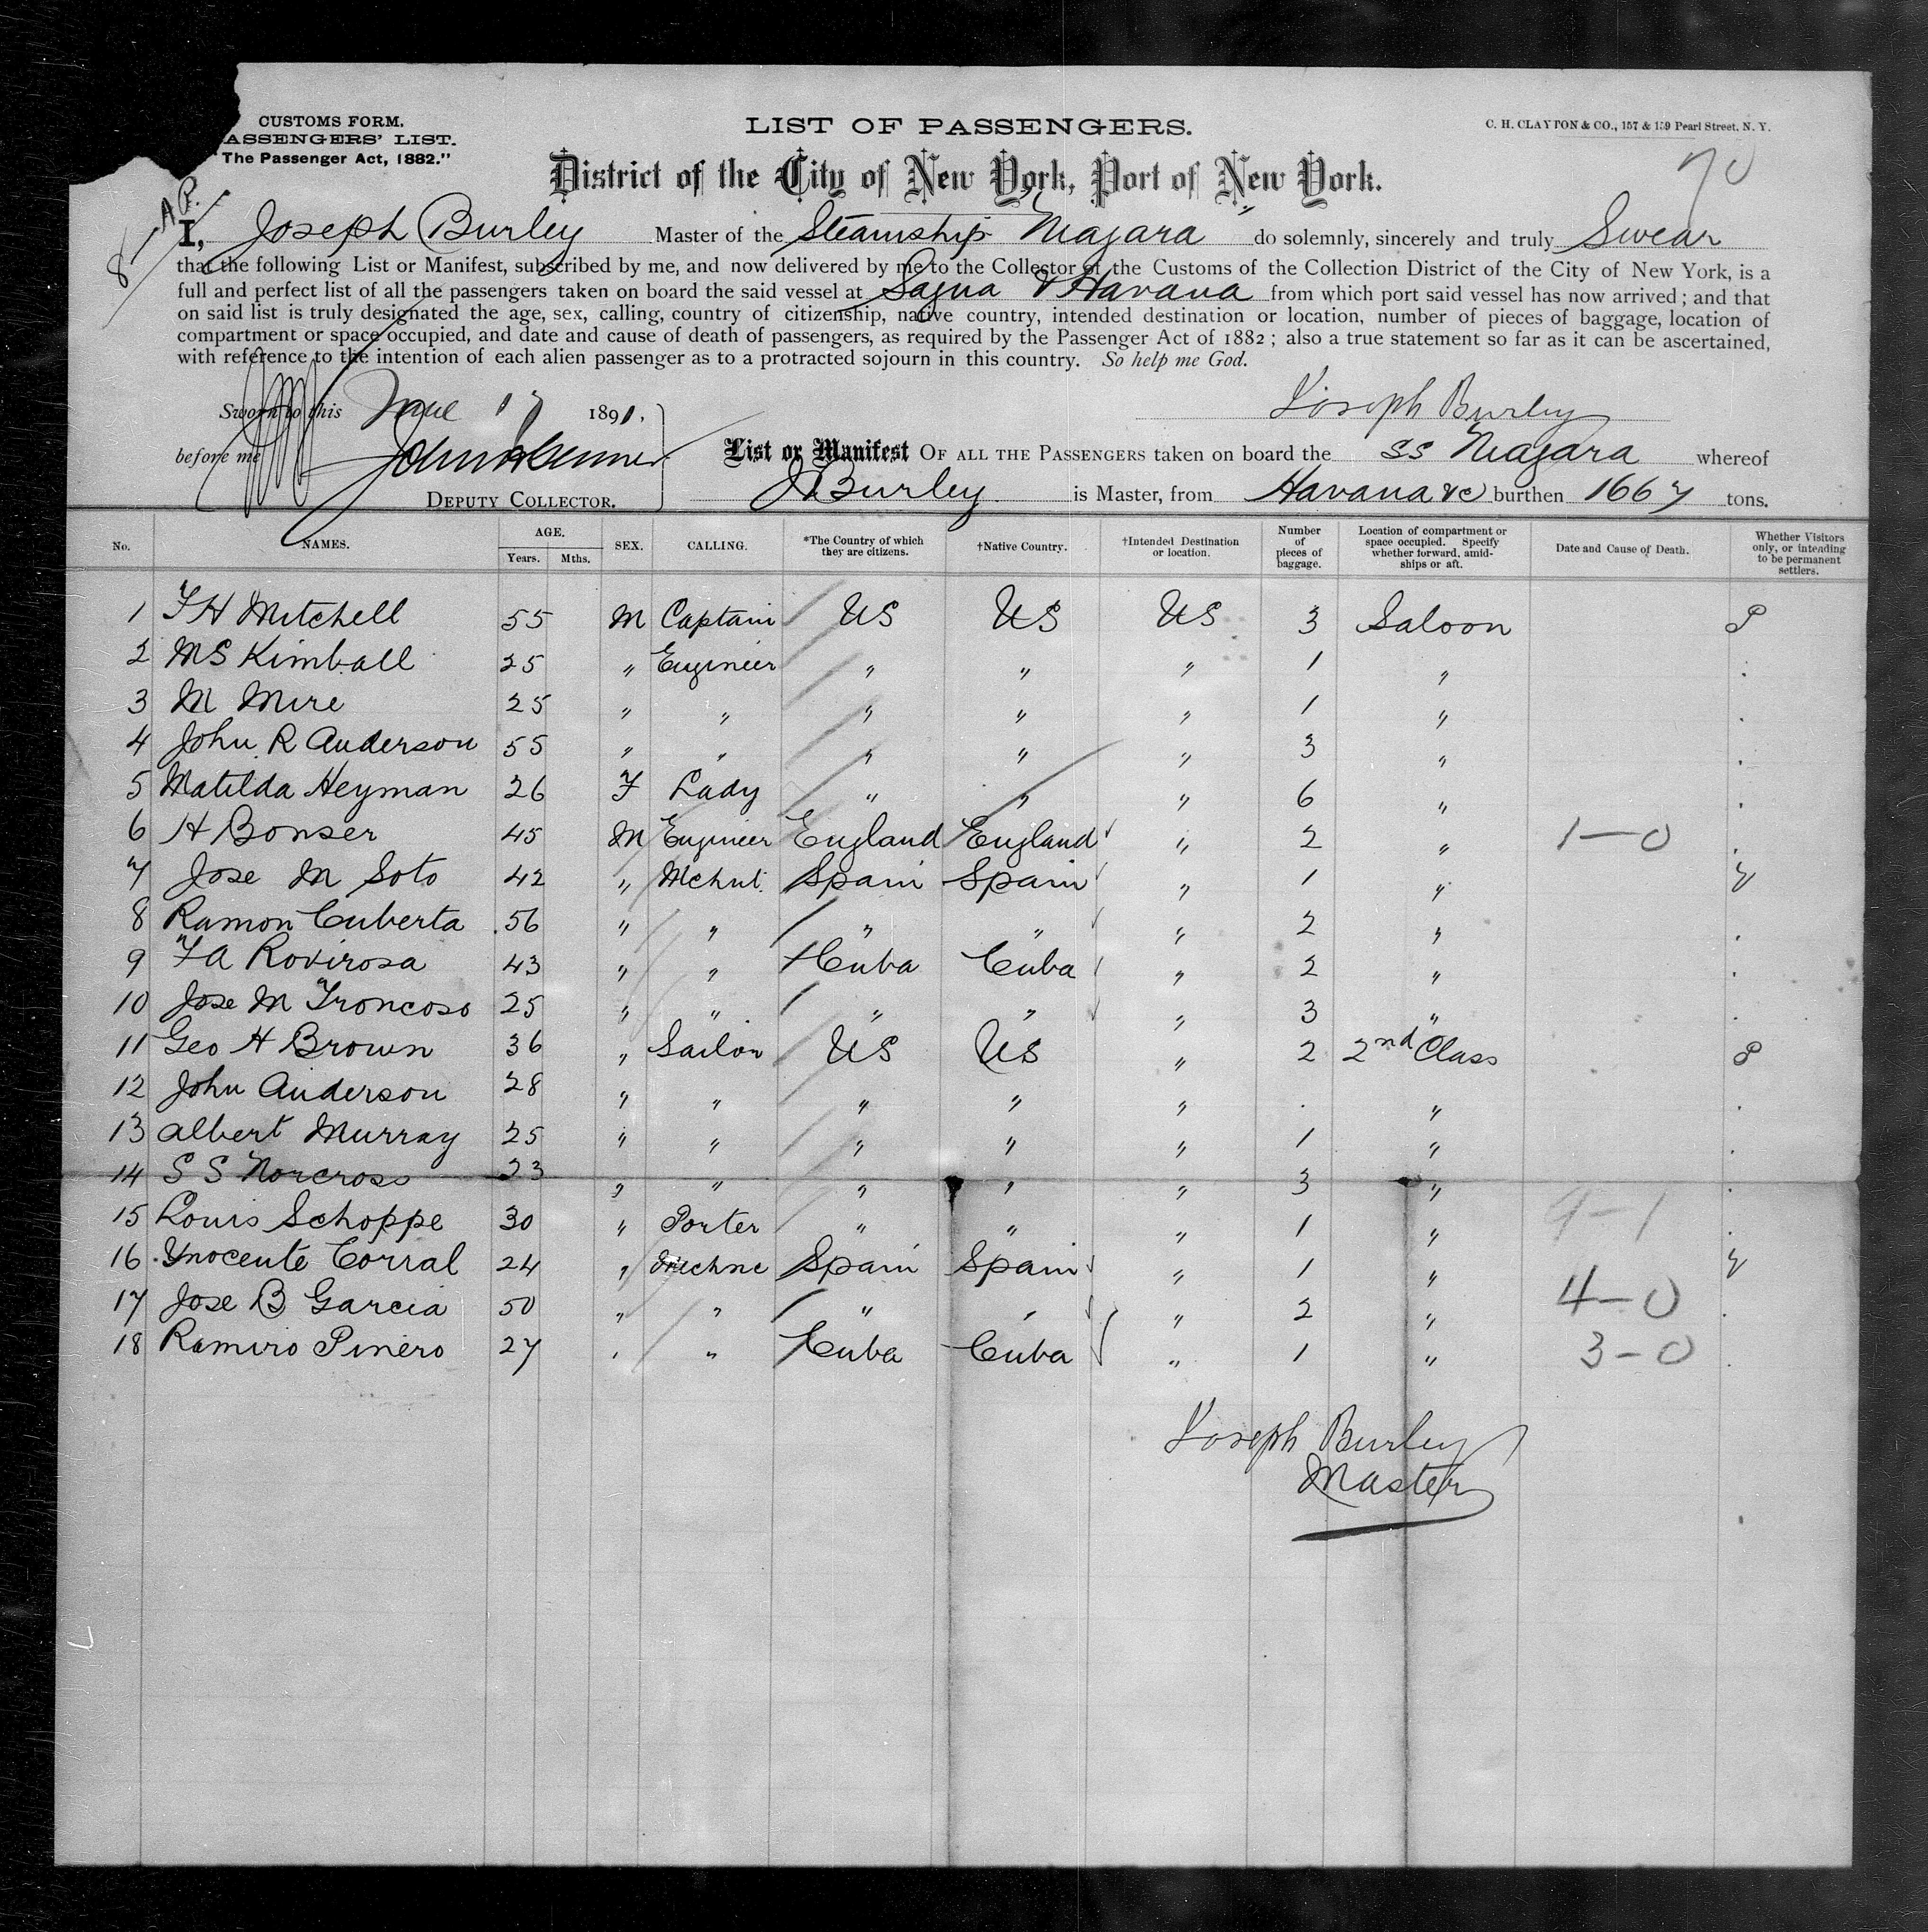 CUSTOMS FORM.
ASSENGERS' LIST.
"The Passenger Act, 1882."
LIST OF PASSENGERS.
C. H. CLAYTON & CO., 157 & 159 Pearl Street, N. Y.
70
District of the City of New York, Port of New York.
I, Joseph Burley Master of the Steamship Niagara" do solemnly, sincerely and truly Swear
that the following List or Manifest, subscribed by me, and now delivered by me to the Collector of the Customs of the Collection District of the City of New York, is a
full and perfect list of all the passengers taken on board the said vessel at Sagua & Havana from which port said vessel has now arrived; and that
on said list is truly designated the age, sex, calling, country of citizenship, native country, intended destination or location, number of pieces of baggage, location of
compartment or space occupied, and date and cause of death of passengers, as required by the Passenger Act of 1882; also a true statement so far as it can be ascertained,
with reference to the intention of each alien passenger as to a protracted sojourn in this country. So help me God.
Sworn to this June 17 1891.
Joseph Burley
before me
DEPUTY COLLECTOR.
List or Manifest OF ALL THE PASSENGERS taken on board the SS Niagara whereof
J Burley is Master, from Havana &c burthen 1667 tons.
No. NAMES. AGE. Years. Mths. SEX. CALLING. *The Country of which they are citizens. †Native Country. †Intended Destination or location. Number of pieces of baggage. Location of compartment or space occupied. Specify whether forward, amidships or aft. Date and Cause of Death. Whether Visitors only, or intending to be permanent settlers.
1 F H Mitchell 55 M Captain US US US 3 Saloon P
2 M S Kimball 25 " Engineer " " " 1 " .
3 M Mire 25 " " " " " 1 " .
4 John R Anderson 55 " " " " " 3 " .
5 Matilda Heyman 26 F Lady " " " 6 " .
6 H Bonser 45 M Engineer England England " 2 " 1-0 .
7 Jose M Soto 42 " Mchnt. Spain Spain " 1 " V
8 Ramon Cuberta 56 " " " " " 2 " .
9 F A Rovirosa 43 " " Cuba Cuba " 2 " .
10 Jose M Troncoso 25 " " " " " 3 " .
11 Geo H Brown 36 " Sailor US US " 2 2nd Class P
12 John Anderson 28 " " " " " . " .
13 Albert Murray 25 " " " " " 1 " .
14 S S Norcross 23 " " " " " 3 " .
15 Louis Schoppe 30 " Porter " " " 1 " 9-1 .
16 Ynocente Corral 24 " Mechnc Spain Spain " 1 " V
17 Jose B Garcia 50 " " " " " 2 " 4-0 .
18 Ramiro Pinero 27 " " Cuba Cuba " 1 " 3-0 .
Joseph Burley
Master